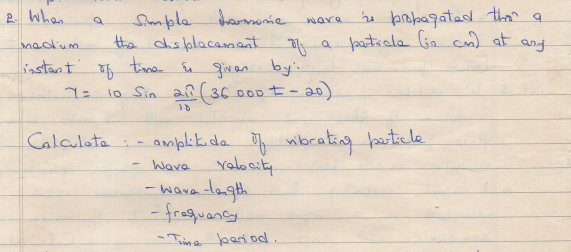 2. When a simple harmonic wave is propagated thro' a
medium the displacement of a particle (in cm) at any
instant of time is given by:
Y = 10 Sin 2π/18 (36000t - 20)
Calculate : - amplitude of vibrating particle
- wave velocity
- wave-length
- frequency
- Time period.